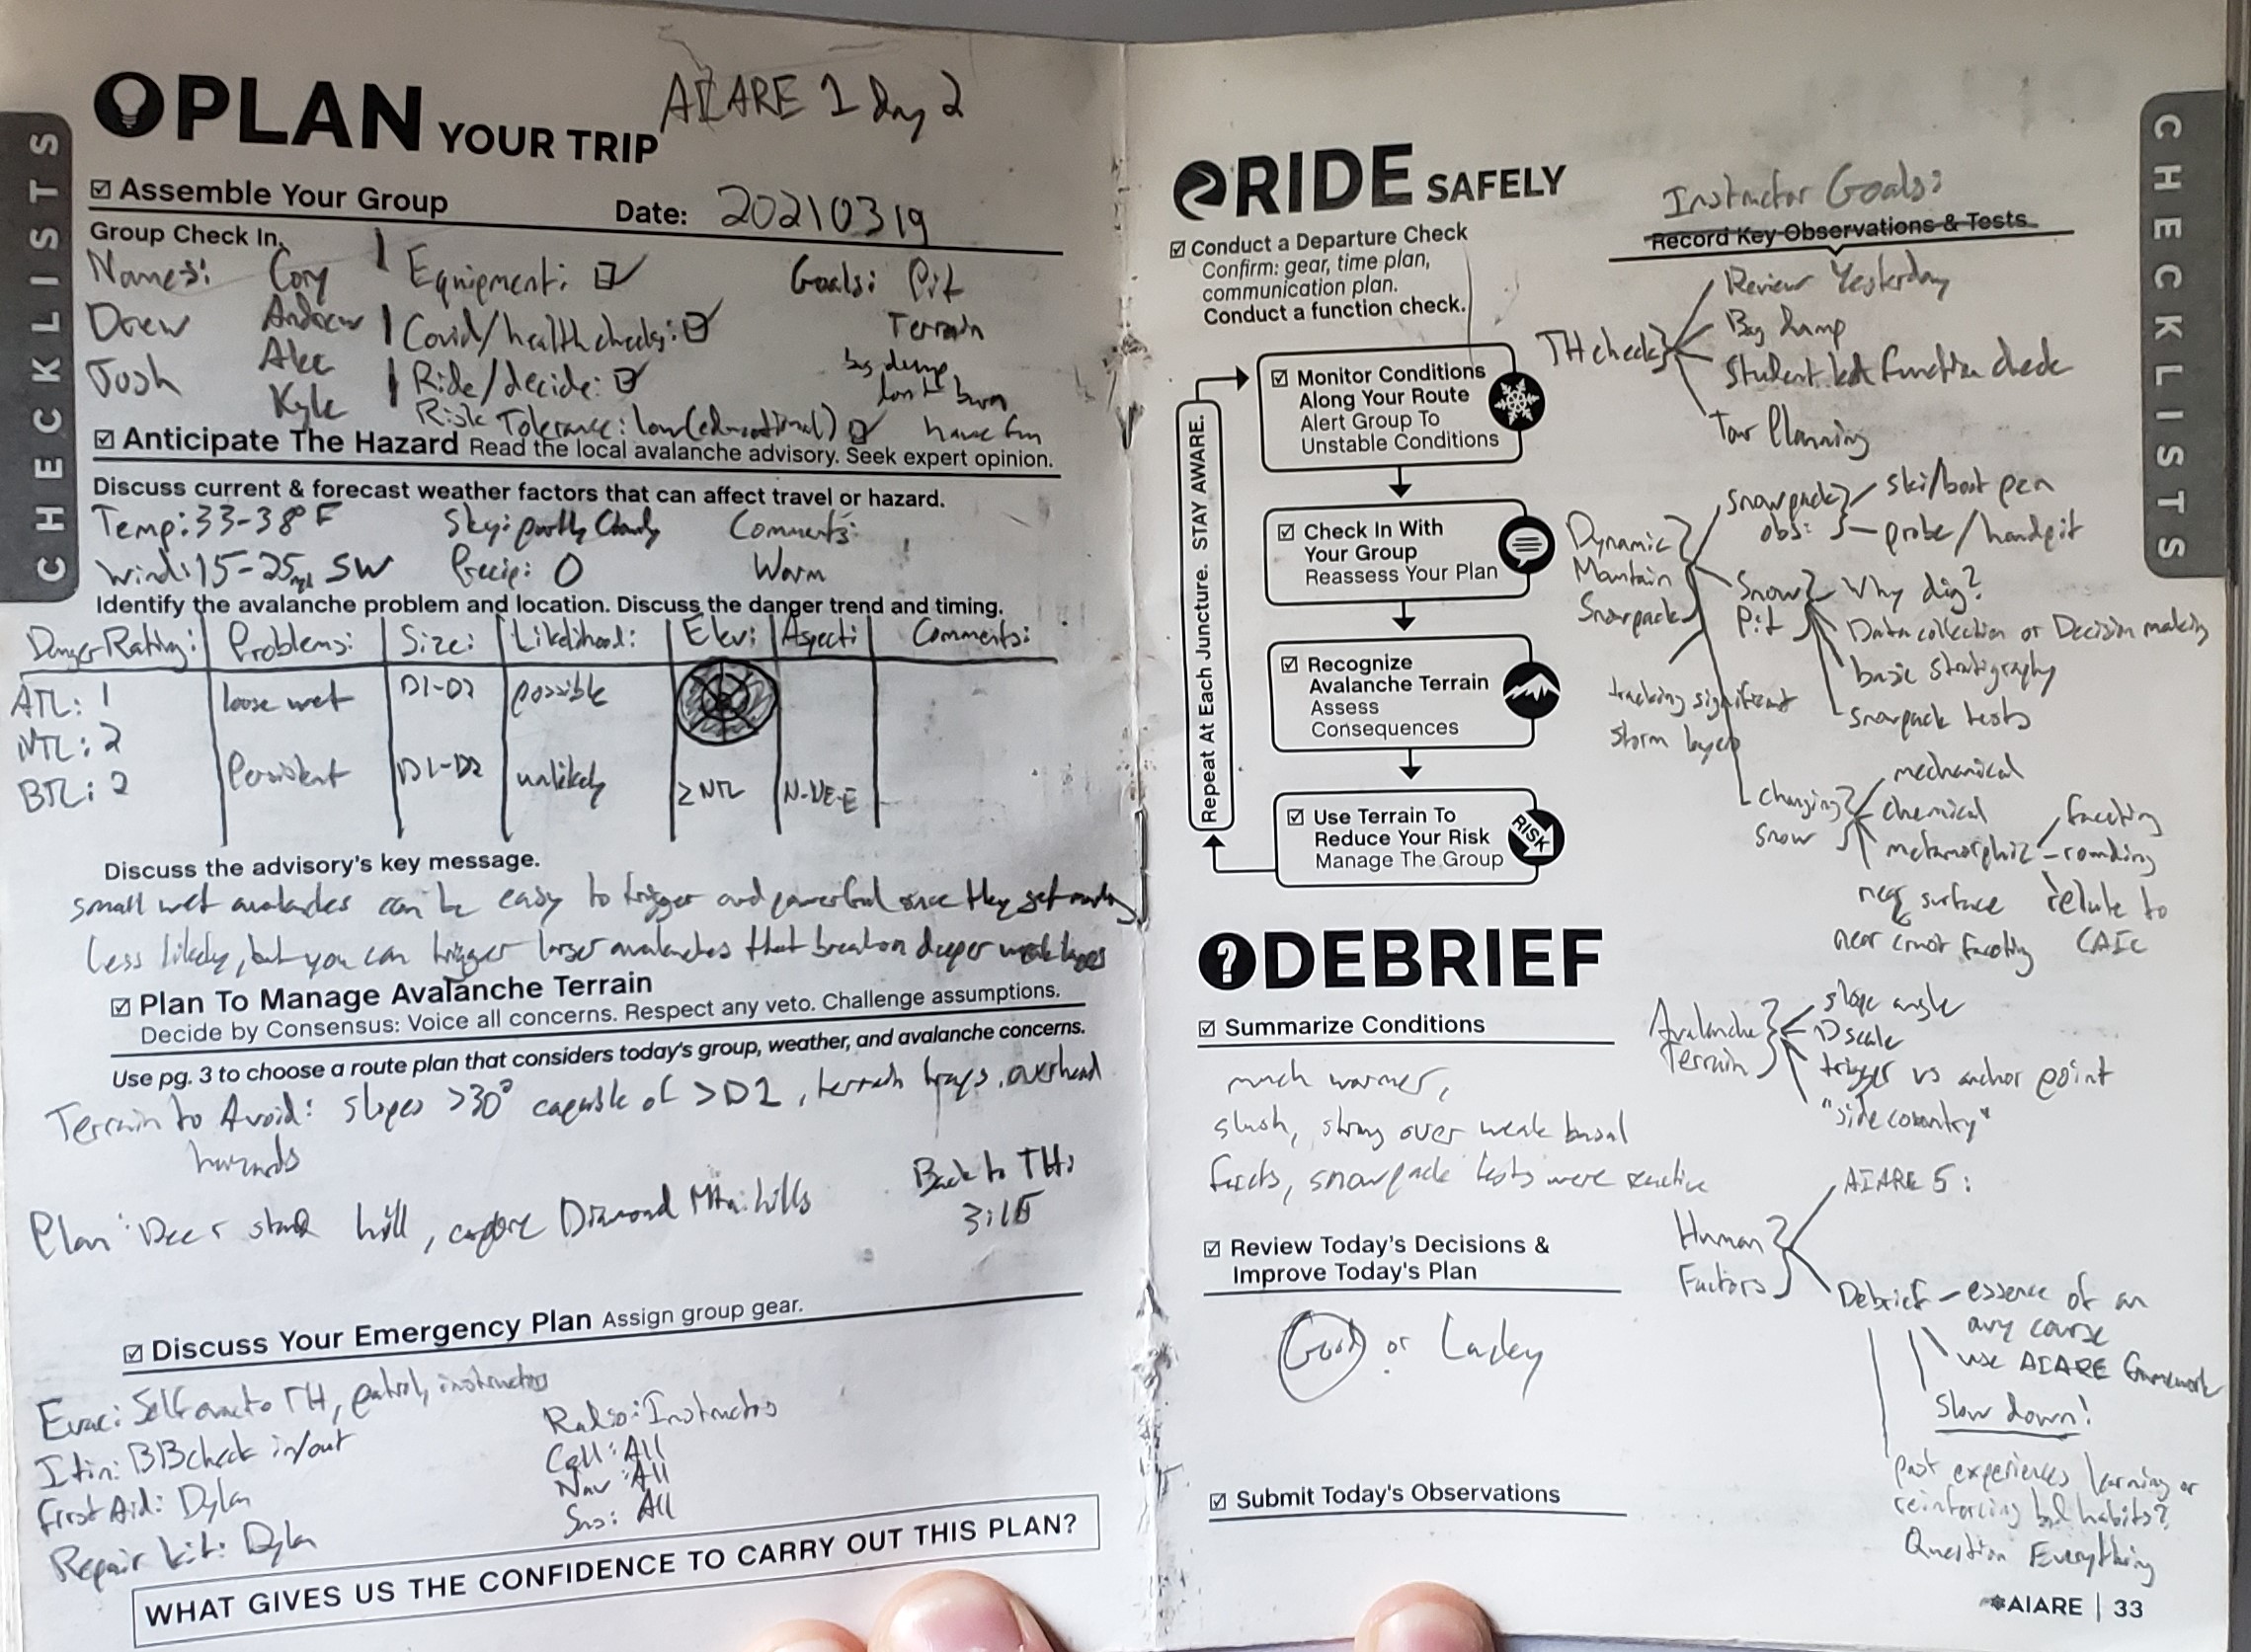 CHECKLISTS
PLAN YOUR TRIP
AIARE 1 Day 2
☑ Assemble Your Group
Date: 20210319
Group Check In.
Names: Cory
Drew Andrew
Josh Alec
Kyle
Equipment: ☑
Covid/health checks: ☑
Ride/decide: ☑
Risk Tolerance: low (educational) ☑
Goals: Pit
Terrain
bag dump
don't burn
have fun
☑ Anticipate The Hazard Read the local avalanche advisory. Seek expert opinion.
Discuss current & forecast weather factors that can affect travel or hazard.
Temp: 33-38°F Sky: partly Cloudy Comments:
Wind: 15-25 mph SW Precip: 0 Warm
Identify the avalanche problem and location. Discuss the danger trend and timing.
Danger Rating: Problems: Size: Likelihood: Elev: Aspect: Comments:
ATL: 1 loose wet D1-D2 possible
NTL: 2
BTL: 2 Persistent D1-D2 unlikely ≥NTL N-NE-E
Discuss the advisory's key message.
small wet avalanches can be easy to trigger and powerful once they get moving
less likely, but you can trigger larger avalanches that break on deeper weak layers
☑ Plan To Manage Avalanche Terrain
Decide by Consensus: Voice all concerns. Respect any veto. Challenge assumptions.
Use pg. 3 to choose a route plan that considers today's group, weather, and avalanche concerns.
Terrain to Avoid: slopes >30° capable of >D2, terrain traps, overhead
hazards
Plan: Deer stand hill, explore Diamond Mtn. hills
Back to TH:
3:15
☑ Discuss Your Emergency Plan Assign group gear.
Evac: Self evac to TH, patrol, instructors
Itin: BB check in/out
First Aid: Dylan
Repair kit: Dylan
Radio: Instructors
Cell: All
Nav: All
All
WHAT GIVES US THE CONFIDENCE TO CARRY OUT THIS PLAN?
RIDE SAFELY
☑ Conduct a Departure Check
Confirm: gear, time plan,
communication plan.
Conduct a function check.
Repeat At Each Juncture. STAY AWARE.
☑ Monitor Conditions
Along Your Route
Alert Group To
Unstable Conditions
☑ Check In With
Your Group
Reassess Your Plan
☑ Recognize
Avalanche Terrain
Assess
Consequences
☑ Use Terrain To
Reduce Your Risk
Manage The Group
RISK
Instructor Goals:
Record Key Observations & Tests
TH check
Review Yesterday
Bag Dump
Student led function check
Tour Planning
Dynamic
Mountain
Snowpack
snowpack
obs:
ski/boot pen
probe/handpit
Snow
Pit
Why dig?
Data collection or Decision making
basic stratigraphy
snowpack tests
tracking significant
storm layers
changing
snow
mechanical
chemical
metamorphic
faceting
rounding
near surface
near crust faceting
relate to
CAIC
Avalanche
Terrain
slope angle
D scale
trigger vs anchor point
"side country"
Human
Factors
AIARE 5:
Debrief - essence of an
avy course
use AIARE framework
Slow down!
Past experiences learning or
reinforcing bad habits?
Question Everything
DEBRIEF
☑ Summarize Conditions
much warmer,
slush, strong over weak basal
facets, snowpack tests were reactive
☑ Review Today's Decisions &
Improve Today's Plan
Good or Lucky
☑ Submit Today's Observations
AIARE | 33
CHECKLISTS